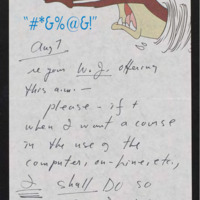 "#*&%@&!"
Aug 7
re your W.J. offering
this a.m. —
please — if +
when I want a course
in the use of the
computer, on-line, etc.,
I shall DO so